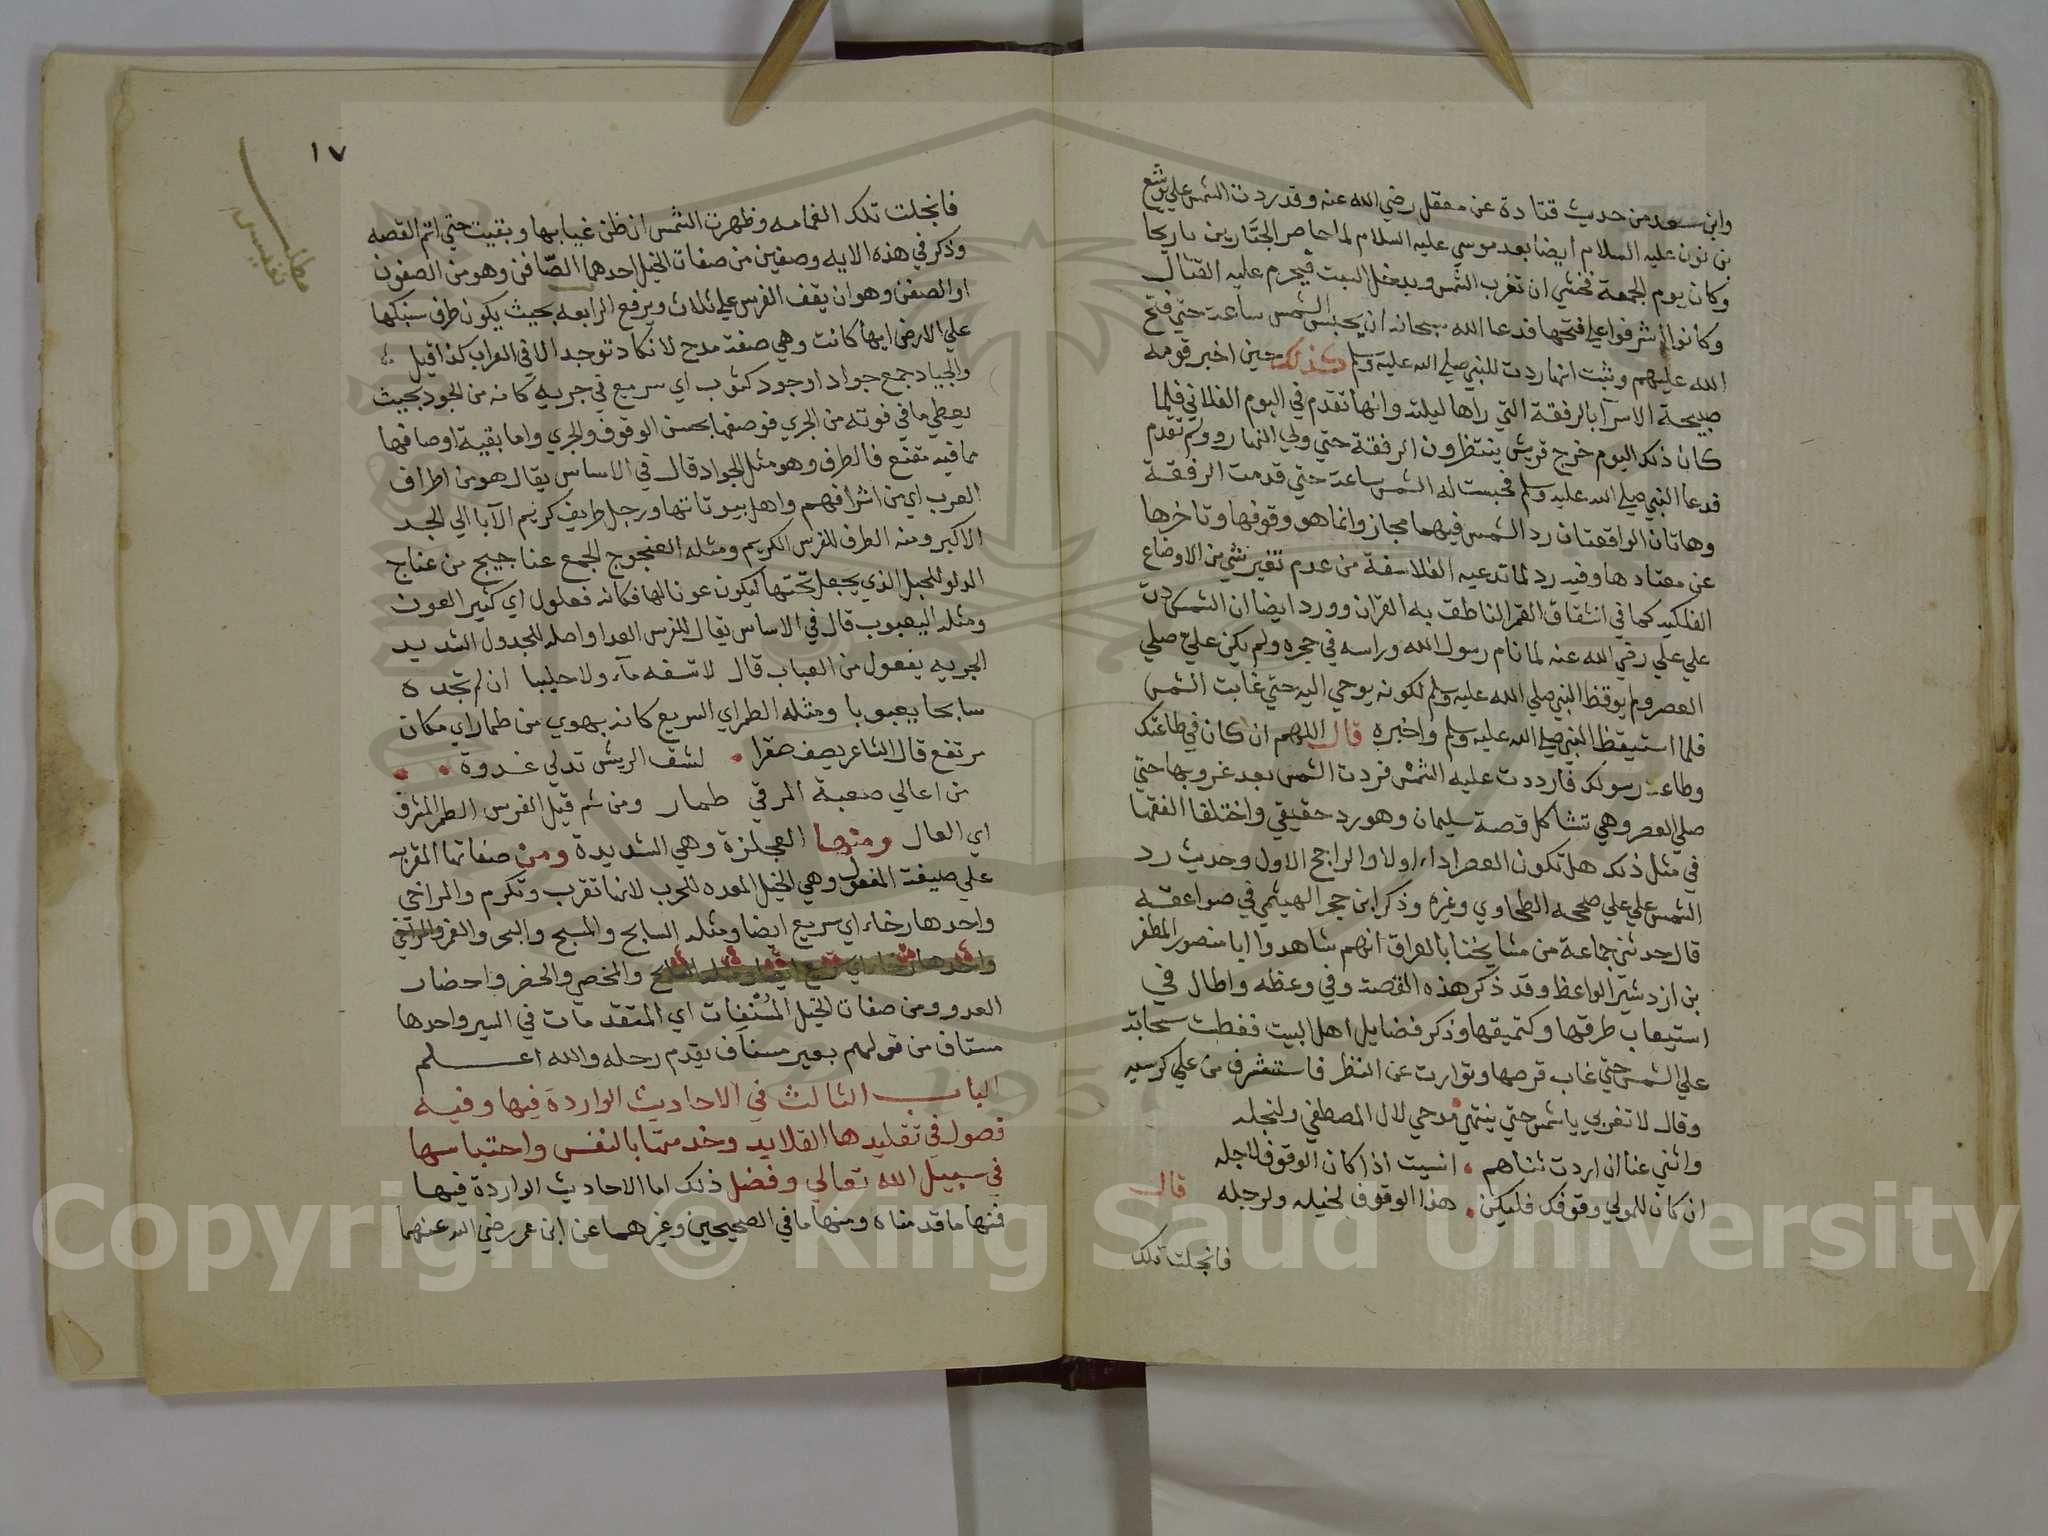 وابن سعد من حديث قتادة عن معقل رضي الله عنه وقد ردت الشمس علي يوشع
بن نون عليه السلام ايضا بعد موسي عليه السلام لما حاصر الجبارين باريحا
وكان يوم الجمعة فخشي ان تغرب الشمس ويدخل السبت فيحرم عليه القتال
وكانوا اشرفوا علي فتحها فدعا الله سبحانه ان يحبس الشمس ساعة حتي فتح
الله عليهم وثبت انها ردت للنبي صلي الله عليه وسلم كذلك حين اخبر قومه
صبيحة الاسرا بالرفقة التي راها ليلته وانها تقدم في اليوم الفلاني فلما
كان ذلك اليوم خرج قريش ينتظرون الرفقة حتي ولي النهار ولم تقدم
فدعا النبي صلي الله عليه وسلم فحبست له الشمس ساعة حتي قدمت الرفقة
وهاتان الواقعتان رد الشمس فيهما مجاز وانما هو وقوفها وتاخرها
عن معتادها وفيه رد لما تدعيه الفلاسفة من عدم تغير شي من الاوضاع
الفلكيه كما في انشقاق القمر الناطق به القران وورد ايضا ان الشمس ردت
علي علي رضي الله عنه لما نام رسول الله وراسه في حجره ولم يكن علي صلي
العصر ولم يوقظ النبي صلي الله عليه وسلم لكونه يوحي اليه حتي غابت الشمس
فلما استيقظ النبي صلي الله عليه وسلم واخبره قال اللهم ان كان في طاعتك
وطاعة رسولك فارددت عليه الشمس فردت الشمس بعد غروبها حتي
صلي العصر وهي تشاكل قصة سليمان وهو رد حقيقي واختلفا الفقها
في مثل ذلك هل تكون العصر اداء اولا والراجح الاول وحديث رد
الشمس علي علي صححه الطحاوي وغيره وذكر ابن حجر الهيثمي في صواعقه
قال حدثني جماعة من مشايخنا بالعراق انهم شاهدوا ابا منصور المظفر
بن ازدشير الواعظ وقد ذكر هذه القصة وفي وعظه واطال في
استيعاب طرقها وتنميقها وذكر فضايل اهل البيت فغطت سحابة
علي الشمس حتي غاب قرصها وتوارت عن النظر فاستشرف من علي كرسيه
وقال لا تغربي يا شمس حتي ينتهي مدحي لال المصطفي ولنجله
واثني عنا ان اردت ثناهم انسيت اذا كان الوقوف لاجله
ان كان للمولي وقوفك فليكن هذا الوقوف لخيله ولرجله قال
فانجلت تلك
١٧
مطلب نفيس
فانجلت تلك الغمامه وظهرت الشمس ان ظن غيابها وبقيت حتي اتم القصه
وذكر في هذه الايه وصفين من صفات الخيل احدهما الصافن وهو من الصفون
او الصفن وهو ان يقف الفرس علي ثلاث ويرفع الرابعه بحيث يكون طرف سنبكها
علي الارض ايها كانت وهي صفة مدح لا تكاد توجد الا في العراب كذا قيل
والجياد جمع جواد او جود كثوب اي سريع في جريه كانه من الجود بحيث
يعطي ما في قوته من الجري فوصفها بحسن الوقوف والجري واما بقية اوصافها
مما فيه مقنع فالطرف وهو مثل الجواد قال في الاساس يقال هو من اطراف
العرب اي من اشرافهم واهل بيوتاتها ورجل طريف كريم الآبا الي الجد
الاكبر ومنه الطرف للفرس الكريم ومثله العنجوج الجمع عناجيج من عناج
الدلو للحبل الذي يجعل تحتها ليكون عونا لها فكانه فعلول اي كثير العون
ومثله اليعبوب قال في الاساس يقال للفرس العدا واصله للجدول الشديد
الجريه يفعول من العباب قال لا تسقه ماء ولا حليبا ان لم تجده
سابحا يعبوبا ومثله الطمر اي السريع كانه يهوي من طمار اي مكان
مرتفع قال الشاعر يصف صقرا لشق الريش تدلي غدوة
من اعالي صعبة المرقي طمار ومن ثم قيل الفرس الطمر المشرف
اي العال ومنها العجلزة وهي الشديدة ومن صفاتها المقربه
علي صيغة المفعول وهي الخيل المعده للحرب لانها تقرب وتكرم والراخي
واحدها رخاء اي سريع ايضا ومثله السابح والمسبح والبحر والغمر والراخي
واحدها رخاء اي سريع ايضا ومثله السابح والمخصي والحضر واحضار
العدو ومن صفات الخيل المسنفات اي المتقدمات في السير واحدها
مسناف من قولهم بعير مسناف يقدم رحله والله اعلم
الباب الثالث في الاحاديث الواردة فيها وفيه
فصول في تقليدها القلايد وخدمتها بالنفس واحتباسها
في سبيل الله تعالي وفضل ذلك اما الاحاديث الواردة فيها
فمنها ما قدمناه ومنها ما في الصحيحين وغيرهما عن ابن عمر رضي الله عنهما
Copyright © King Saud University
1957